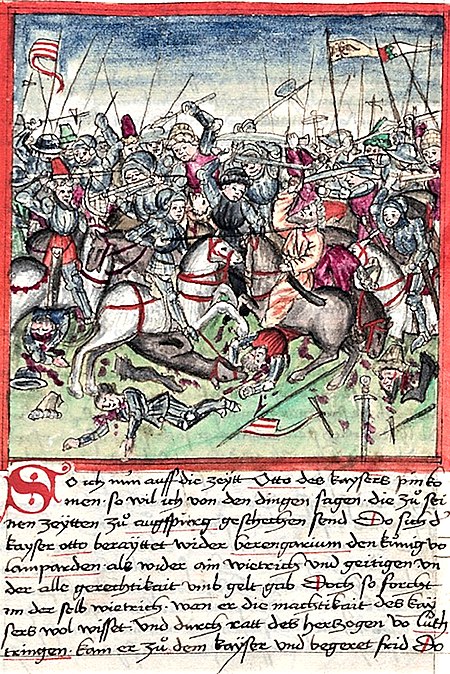 So ich nun auff die zeÿtt Otto des kaÿsers pin ko
men · so wil ich von den dingen sagen · die zů sei
nen zeÿtten zů augspurg geschechen send Do sich d
kaÿser otto beraÿttet wider berengarium den kung vo
lamparden als wider ain wietrich und geitigen un
der alle gerechtikait umb gelt gab Doch so forcht
im der selb wietrich · wan er die machtikait des kaÿ
sers wol wisset · und durch ratt des hertzogen vo luth
tringen · kam er zů dem kaÿser und begeret frid Do